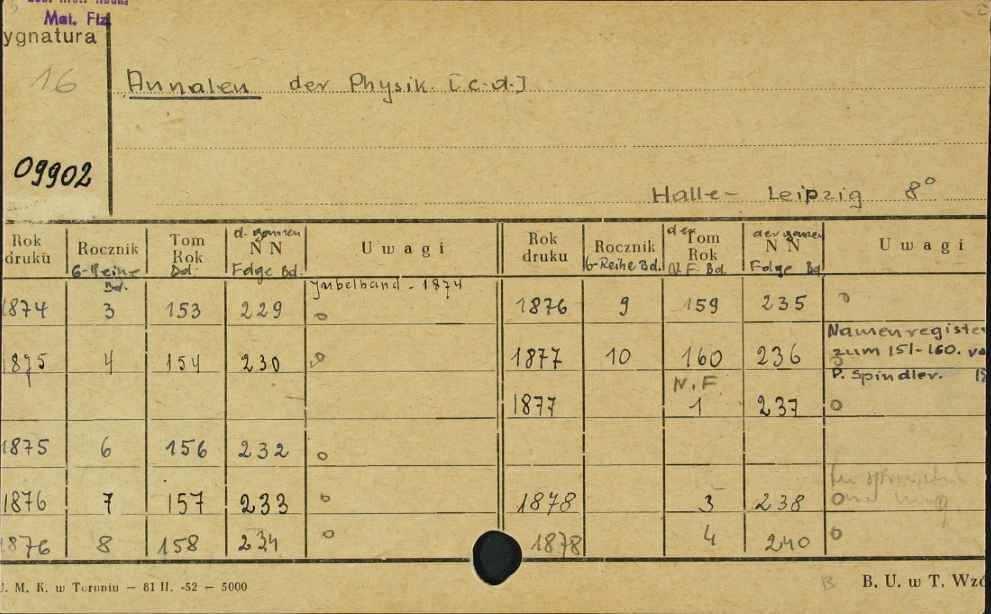 Mat. Fiz.
ygnatura
16
Annalen der Physik. [c.d.]
09902
Halle - Leipzig 8°
Rok druku Rocznik 6-Reihe Bd. Tom Rok Bd. d. ganzen N N Folge Bd. Uwagi
1874 3 153 229 Jubelband - 1874
1875 4 154 230
1875 6 156 232
1876 7 157 233
1876 8 158 234
Rok druku Rocznik 6-Reihe Bd. der Tom Rok N. F. Bd. der ganzen N N Folge Bd. Uwagi
1876 9 159 235
1877 10 160 236 Namenregister
zum 151-160.
P. Spindler.
N. F.
1877 1 237
1878 3 238
1878 4 240
. M. K. w Toruniu — 61 II. -52 — 5000
B B. U. w T. Wzó